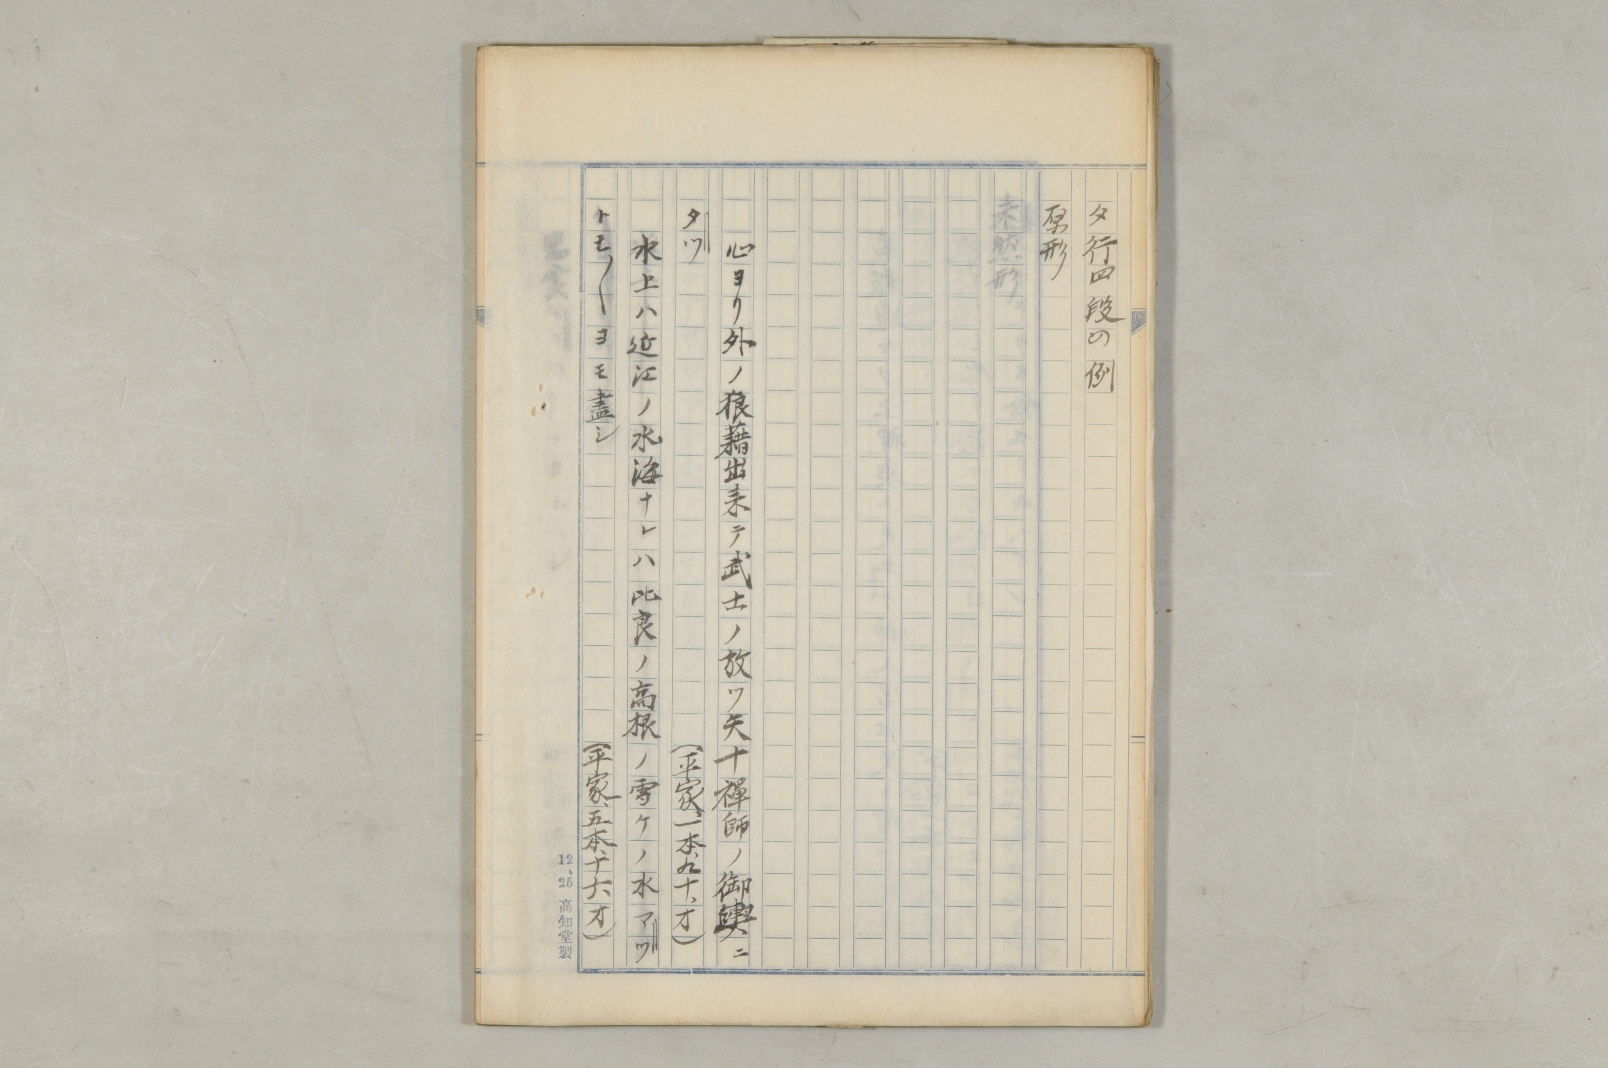 タ行四段の例
原形
心ヨリ外ノ狼藉出来テ武士ノ放ツ矢十禅師ノ御輿ニ
タツ
(平家、一本、九十、オ)
水上ハ近江ノ水海ナレハ比良ノ高根ノ雪ケノ水マツ
トモ〳〵ヨモ盡シ
(平家、五本、十六、オ)
12、25 高知堂製